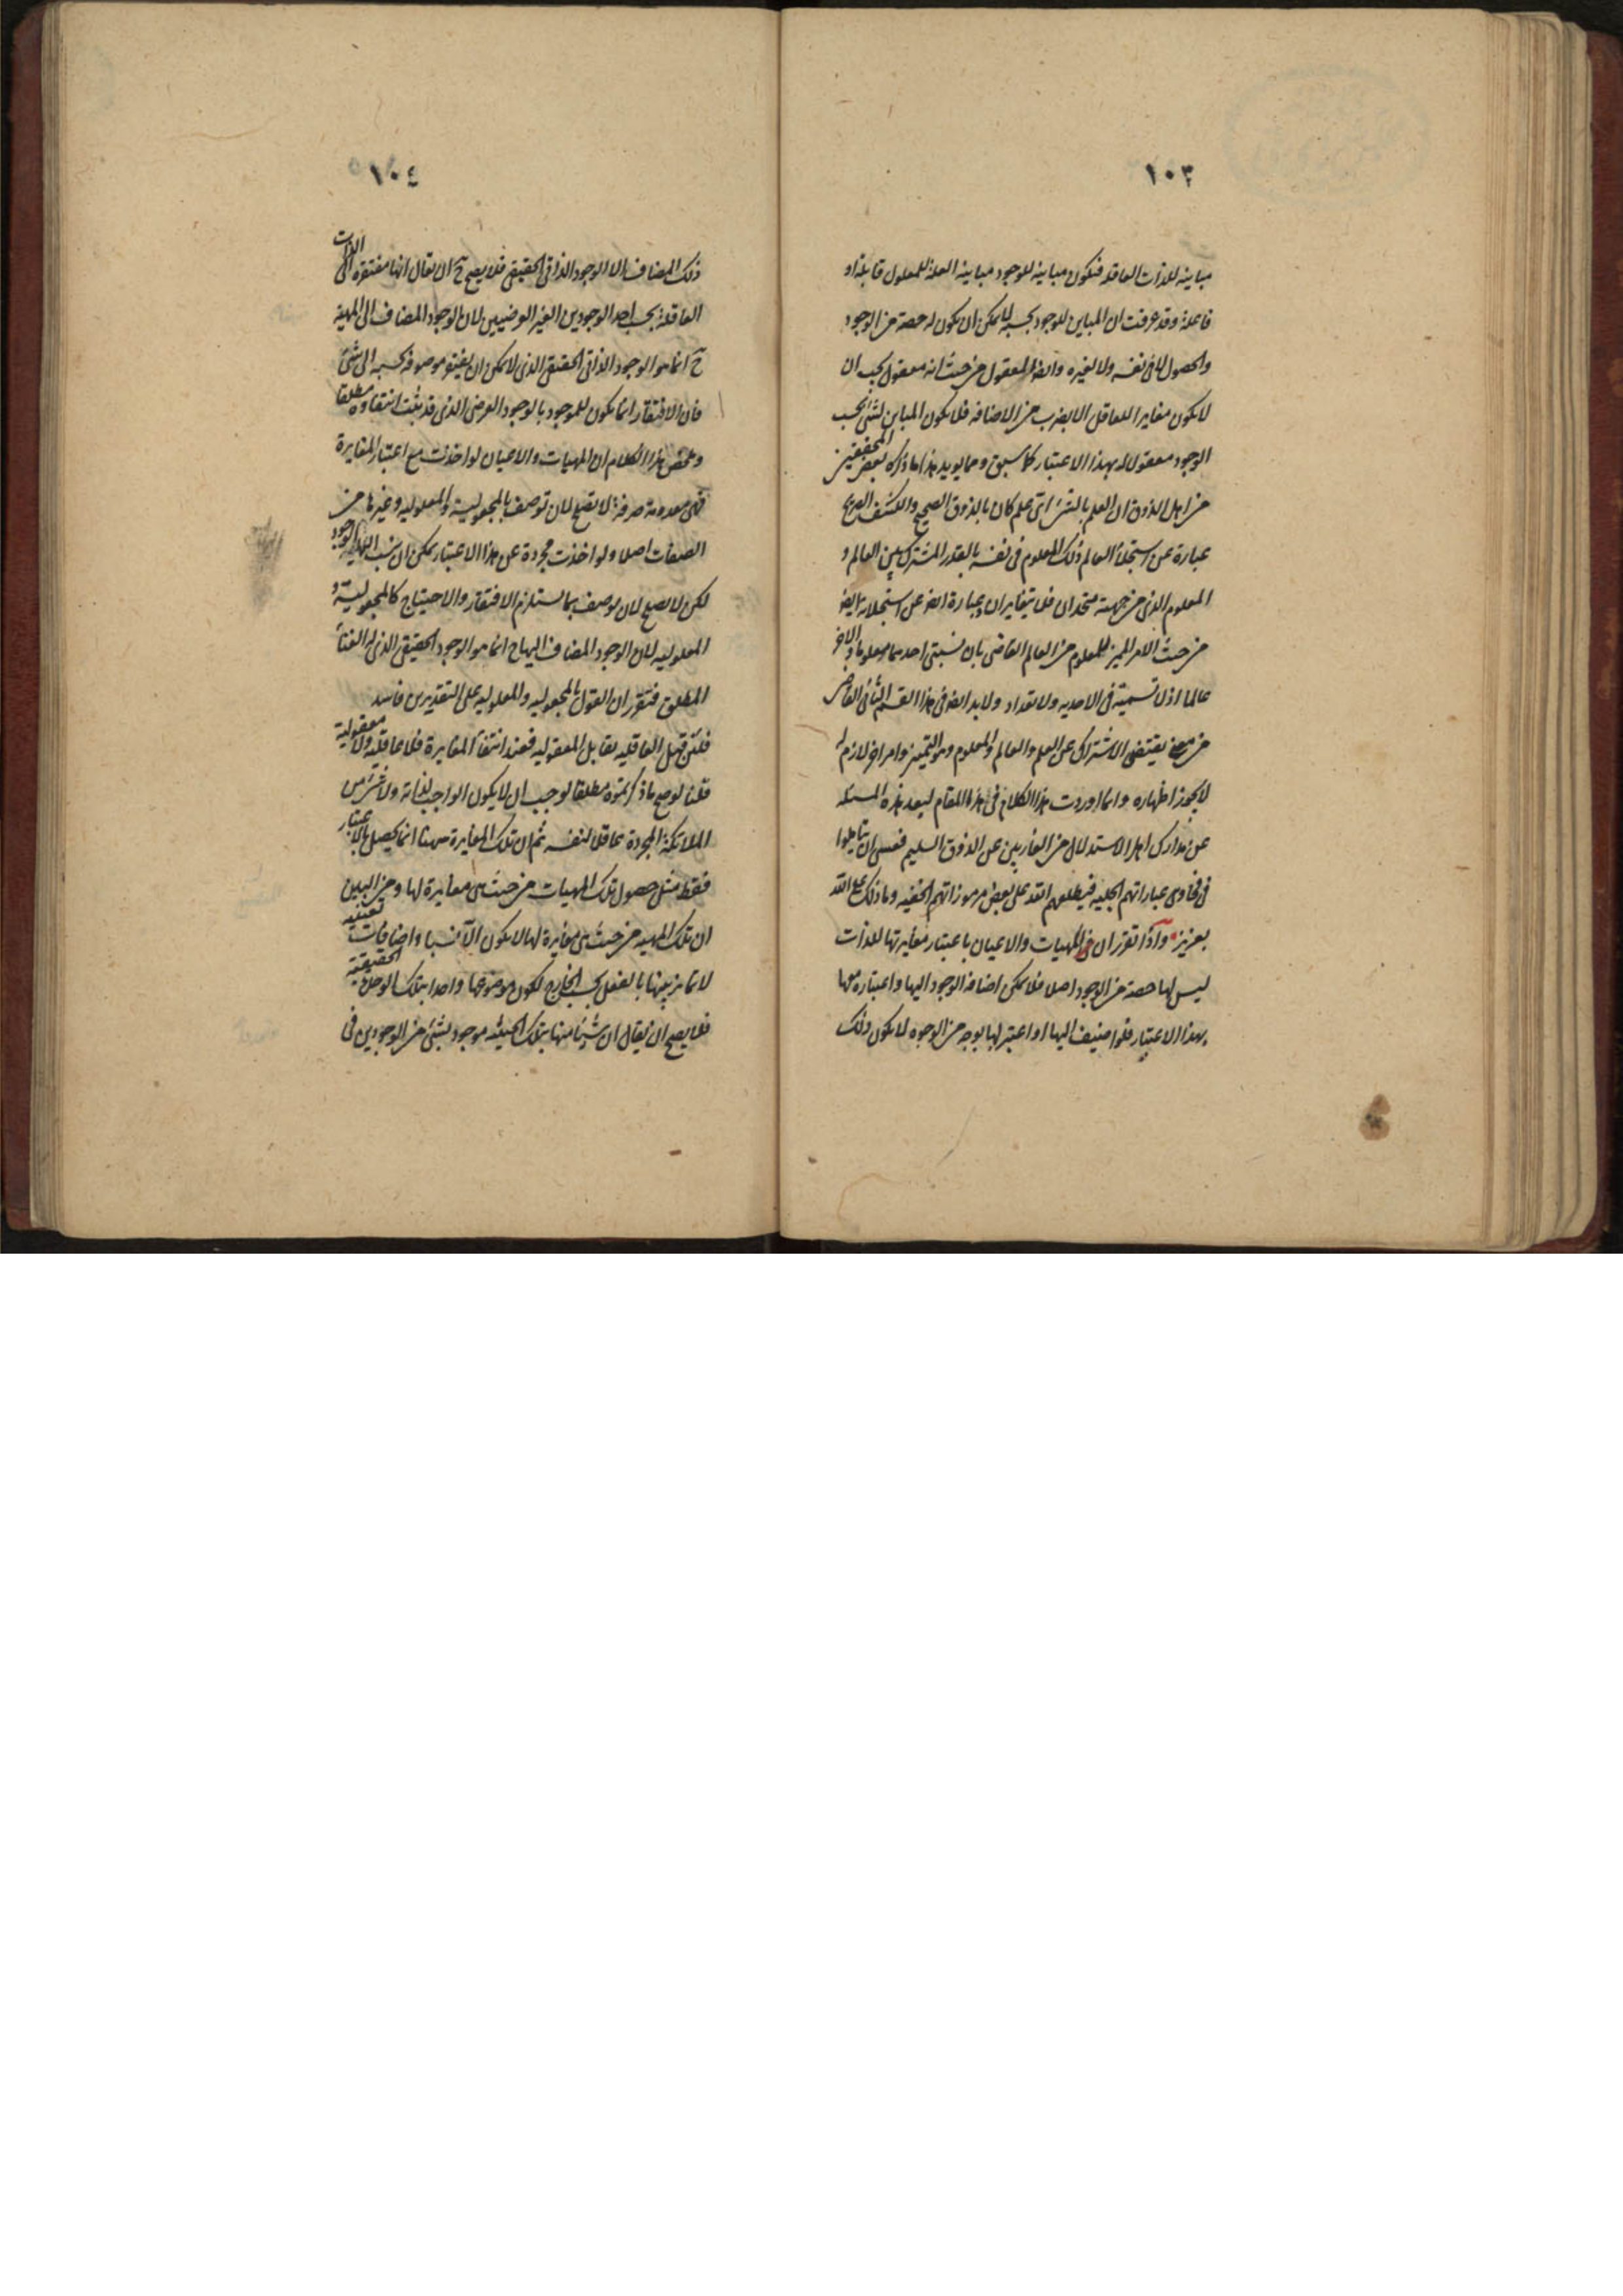 ١٠٣
مباينه للذات العاقله فتكون مباينه للوجود مباينه العله للمعلول قابله او
فاعله وقد عرفت ان المباين للوجود بحسبه لا يمكن ان يكون له حصة من الوجود
والحصول لا فى نفسه ولا لغيره وايضا المعقول من حيث انه معقول يجب ان
لا يكون مغايرا للعاقل الا بضرب من الاضافه فلا يكون المباين لشئ بحسب
الوجود معقولا له بهذا الاعتبار كما سبق ومما يويد هذا ما ذكره بعض المحققين
من اهل الذوق ان العلم بالشئ اى علم كان بالذوق الصحيح والكشف الصريح
عبارة عن استجلاء العالم ذلك المعلوم فى نفسه بالقدر المشترك بين العالم و
المعلوم الذى من جهته متحدان فلا يتغايران وعبارة ايضا عن استجلائه ايضا
من حيث الامر المميز للمعلوم من العالم القاضى بان نسبتى احدهما معلوما والاخر
عالما اذ لا تسمية فى الاحديه ولا تعداد ولا بد ايضا فى هذا القسم الثانى القاضى
من معنى يقتضى الاشتراك عن العلم والعالم والمعلوم وهو التميز وامر اخر لازم له
لا يجوز اظهاره وانما اوردت هذا الكلام فى هذا المقام لبعد هذه المسئله
عن مدارك اهل الاستدلال من العاريين عن الذوق السليم فعسى ان يتاملوا
فى فحاوى عباراتهم الجليه فيطلعهم الله على بعض مرموزاتهم الخفيه وما ذلك على الله
بعزيز واذا تقرر ان المهيات والاعيان باعتبار مغايرتها للذات
ليس لها حصة من الوجود اصلا فلا يمكن اضافه الوجود اليها واعتباره معها
بهذا الاعتبار فلو اضيف اليها او اعتبر لها بوجه من الوجوه لا يكون ذلك
١٠٤
ذلك المضاف الا الوجود الذاتى الحقيقى فلا يصح ح ان يقال انها مفتقرة الى الذات
العاقلة بحسب احد الوجودين الغير العرضيين لان الوجود المضاف الى المهية
ح انما هو الوجود الذاتى الحقيقى الذى لا يمكن ان يفتقر موصوفه بحسبه الى شئ
فان الافتقار انما يكون للموجود بالوجود العرضى الذى قد ثبت انتفاوه مطلقا
وملخص هذا الكلام ان المهيات والاعيان لو اخذت مع اعتبار المغايرة
فهى معدومة صرفة لا تصلح لان توصف بالمجعولية والمعلوليه وغيرها من
الصفات اصلا ولو اخذت مجردة عن هذا الاعتبار يمكن ان ينسب اليها الوجود
لكن لا تصلح لان يوصف بما يستلزم الافتقار والاحتياج كالمجعولية و
المعلوليه لان الوجود المضاف اليها ح انما هو الوجود الحقيقى الذى له الغناء
المطلق فتقرر ان القول بالمجعوليه والمعلوليه على التقديرين فاسد
فلئن قيل العاقليه تقابل المعقوليه فعند انتفاء المغايرة فلا عاقليه ولا معقولية
قلنا لو صح ما ذكرتموه مطلقا لوجب ان لا يكون الواجب لذاته ولا شئ من
الملائكة المجردة عاقلا لنفسه ثم ان تلك المغايرة ههنا انما يحصل بالاعتبار
فقط مثل حصول تلك المهيات من حيث هى مغايرة لها ومن البين
ان تلك المهيه من حيث هى مغايرة لها لا يكون الا نسبا واضافات تعينيه
لا تمايز بينها بالفعل بحسب الخارج لكون موضوعها واحدا بتلك الوحدة الحقيقية
فلا يصح ان يقال ان شيئا منها بتلك الحيثيه موجود بشئ من الوجودين فى